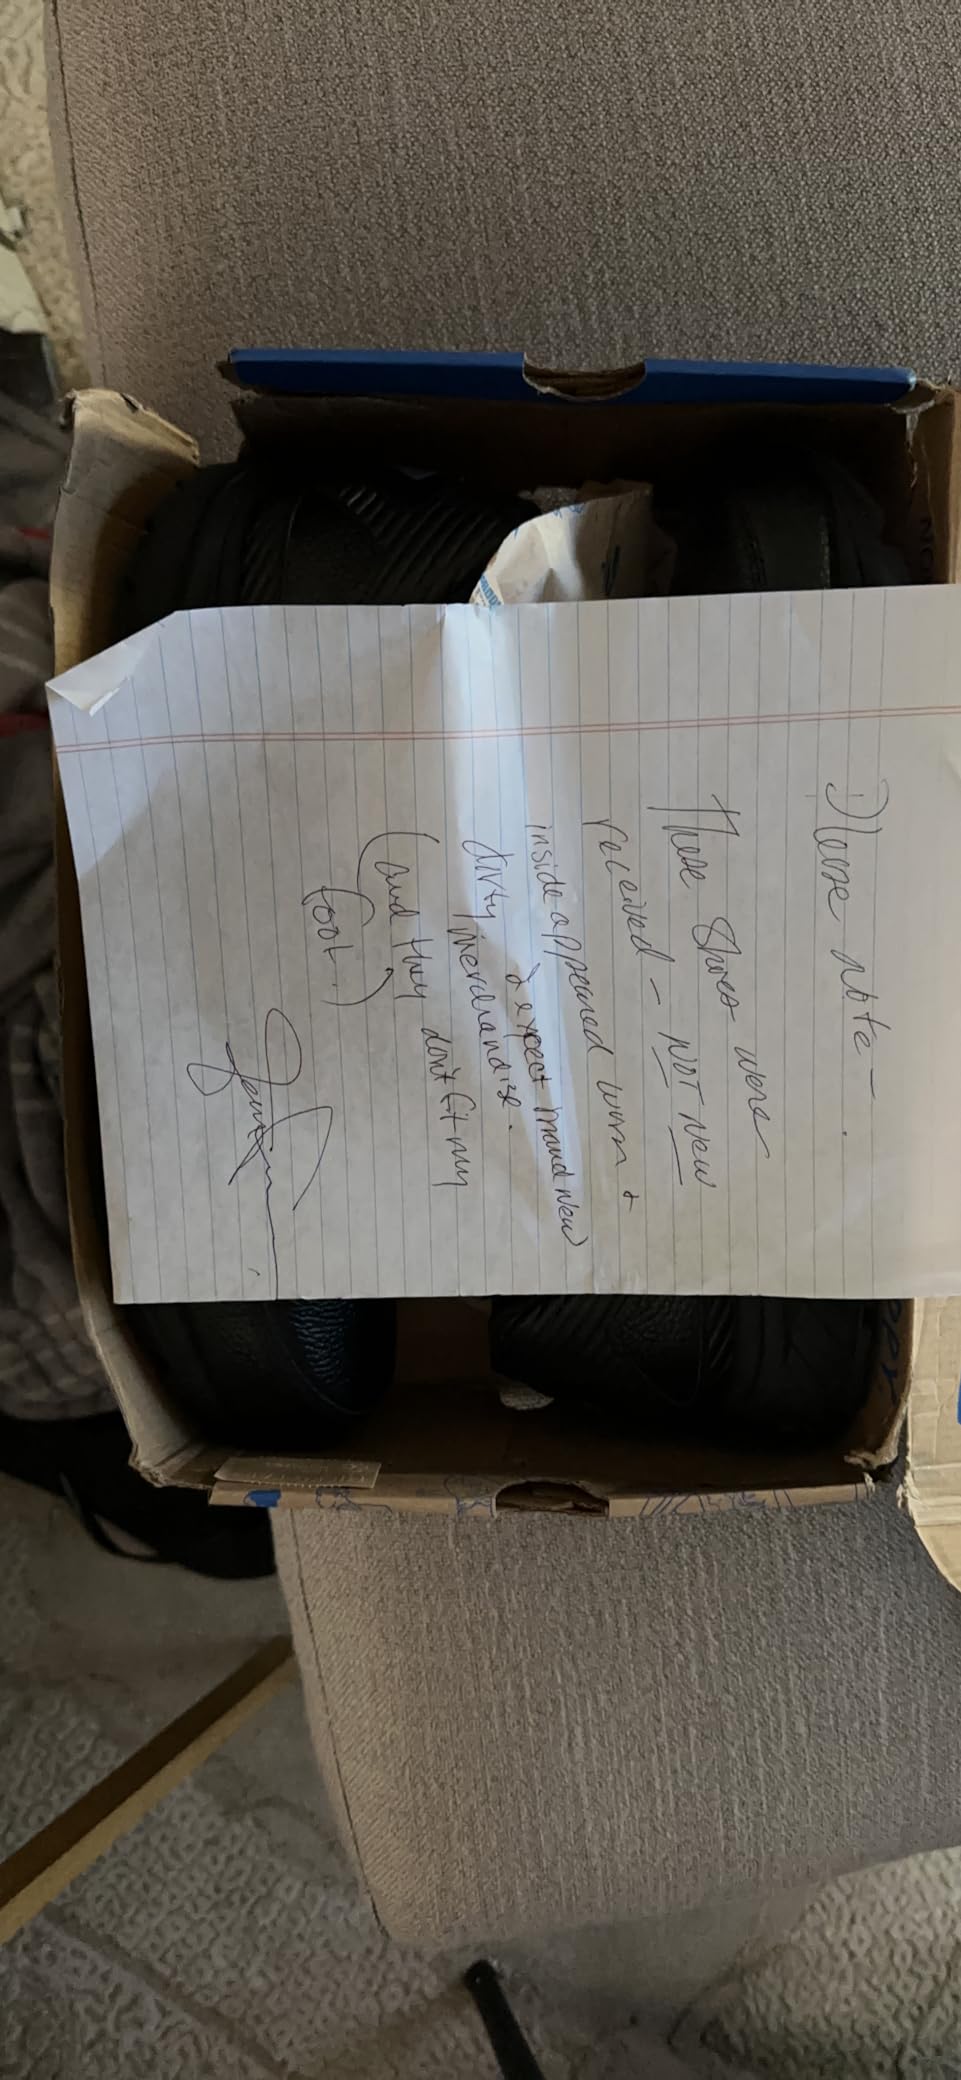 Please note -
these shoes were
received - NOT new
inside appeared worn +
dirty I expect brand new
merchandise.
(and they don't fit my
foot.)